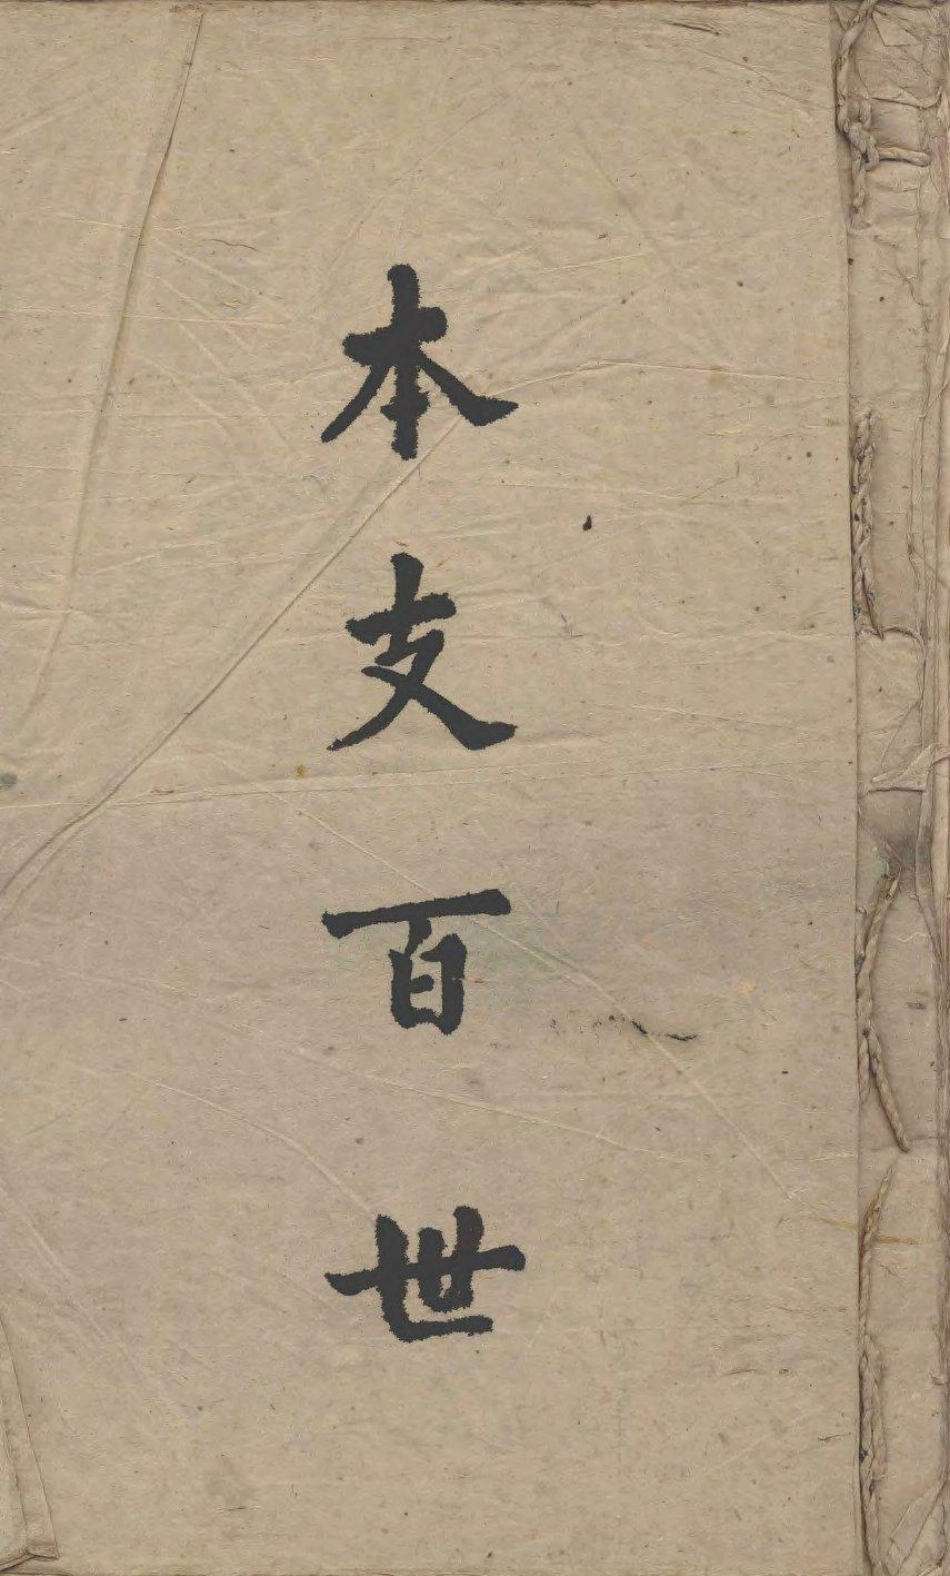 本支百世